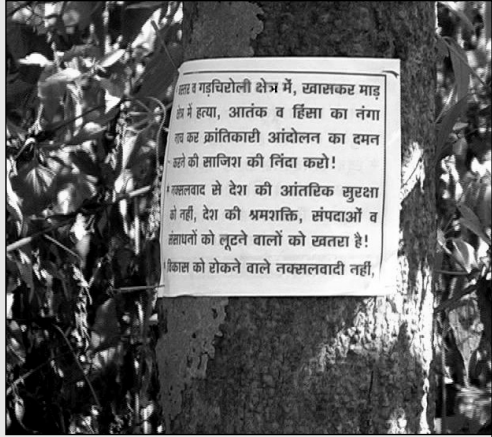 बस्तर व गड़चिरोली क्षेत्र में, खासकर माड़
क्षेत्र में हत्या, आतंक व हिंसा का नंगा
नाच कर क्रांतिकारी आंदोलन का दमन
करने की साजिश की निंदा करो!
नक्सलवाद से देश की आंतरिक सुरक्षा
को नहीं, देश की श्रमशक्ति, संपदाओं व
संसाधनों को लूटने वालों को खतरा है!
विकास को रोकने वाले नक्सलवादी नहीं,